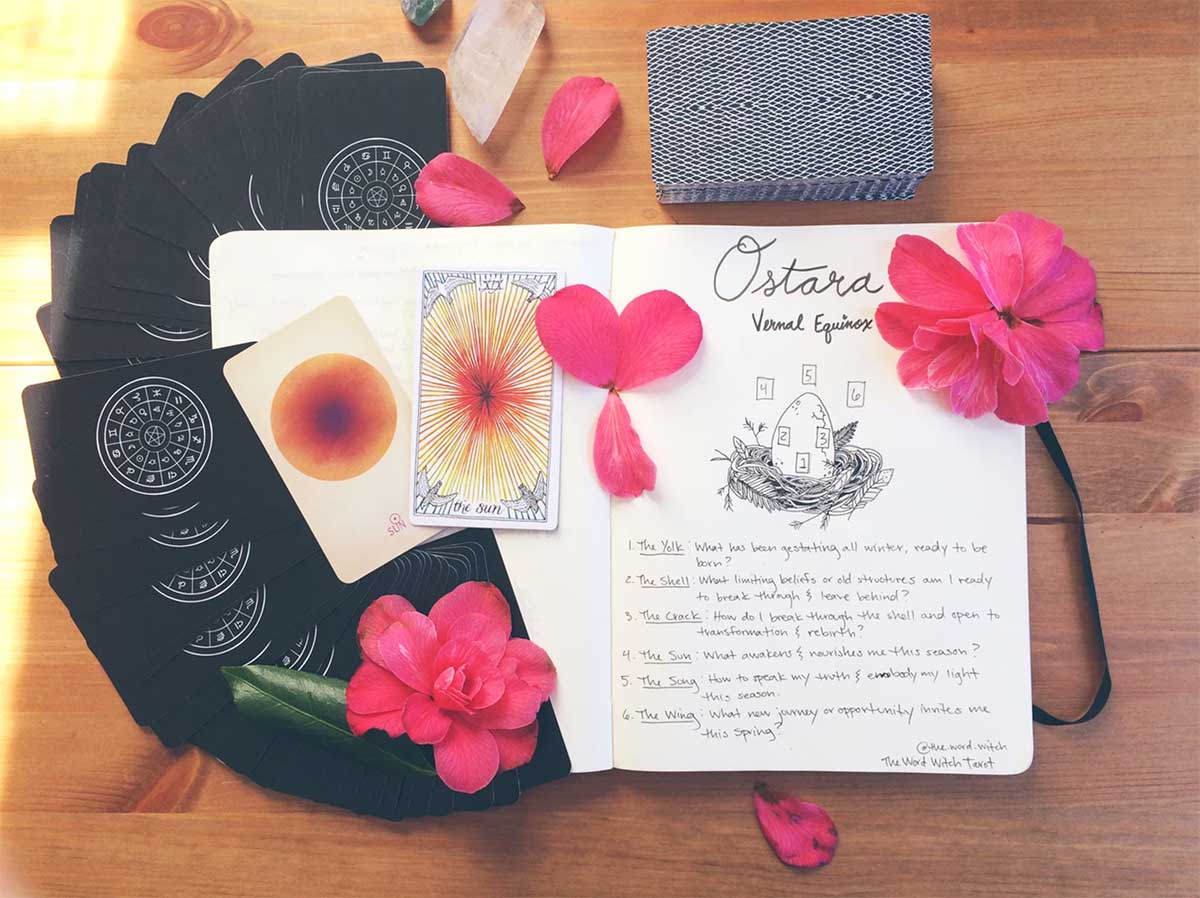 XIX
the sun
SUN
Ostara
Vernal Equinox
5
4
6
2
3
1
1. The Yolk: What has been gestating all winter, ready to be
born?
2. The Shell: What limiting beliefs or old structures am I ready
to break through & leave behind?
3. The Crack: How do I break through the shell and open to
transformation & rebirth?
4. The Sun: What awakens & nourishes me this season?
5. The Song: How to speak my truth & embody my light
this season.
6. The Wing: What new journey or opportunity invites me
this Spring?
@the.word.witch
The Word Witch Tarot